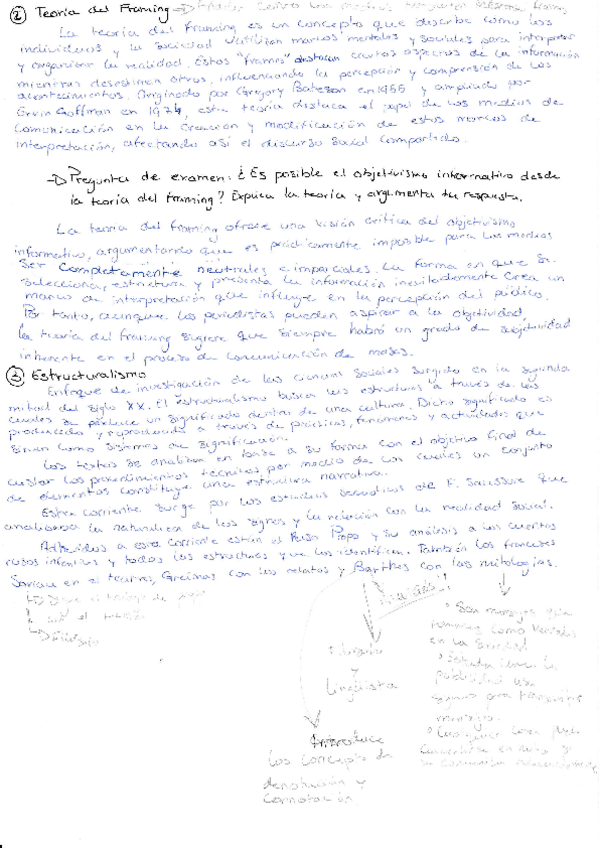 ② Teoría del Framing
La teoría del framing es un concepto que describe como los
individuos y la sociedad utilizan marcos mentales y sociales para interpretar
y organizar la realidad. Estos "frames" destacan ciertos aspectos de la información
mientras desestiman otros, influenciando la percepción y comprensión de los
acontecimientos. Originado por Gregory Bateson en 1955 y ampliado por
Ervin Goffman en 1974, esta teoría destaca el papel de los medios de
comunicación en la creación y modificación de estos marcos de
interpretación, afectando así el discurso social compartido.
→ Pregunta de examen: ¿Es posible el objetivismo informativo desde
la teoría del framing? Explica la teoría y argumenta tu respuesta.
La teoría del framing ofrece una visión crítica del objetivismo
informativo, argumentando que es prácticamente imposible para los medios
ser completamente neutrales e imparciales. La forma en que se
selecciona, estructura y presenta la información inevitablemente crea un
marco de interpretación que influye en la percepción del público.
Por tanto, aunque los periodistas pueden aspirar a la objetividad,
la teoría del framing sugiere que siempre habrá un grado de subjetividad
inherente en el proceso de comunicación de masas.
③ Estructuralismo
Enfoque de investigación de las ciencias sociales surgido en la segunda
mitad del siglo XX. El estructuralismo busca las estructuras a través de las
cuales se produce un significado dentro de una cultura. Dicho significado es
producido y reproducido a través de prácticas, fenómenos y actividades que
sirven como sistemas de significación.
Los textos se analizan en base a su forma con el objetivo final de
los procedimientos técnicos por medio de los cuales un conjunto
de elementos constituye una estructura narrativa.
Esta corriente surge por los estudios de F. Saussure que
analizaba la naturaleza de los signos y la relación con la realidad social.
a esta corriente están el Ruso Propp y su análisis a los cuentos
rusos infantiles y todas las estructuras que los identifican. También los franceses
Souriau en el teatro, Greimas con los relatos y Barthes con las mitologías.
y
lingüista
Introduce
los concepto de
denotación y
connotación
en la sociedad
la
publicidad usa
signos para
mensajes